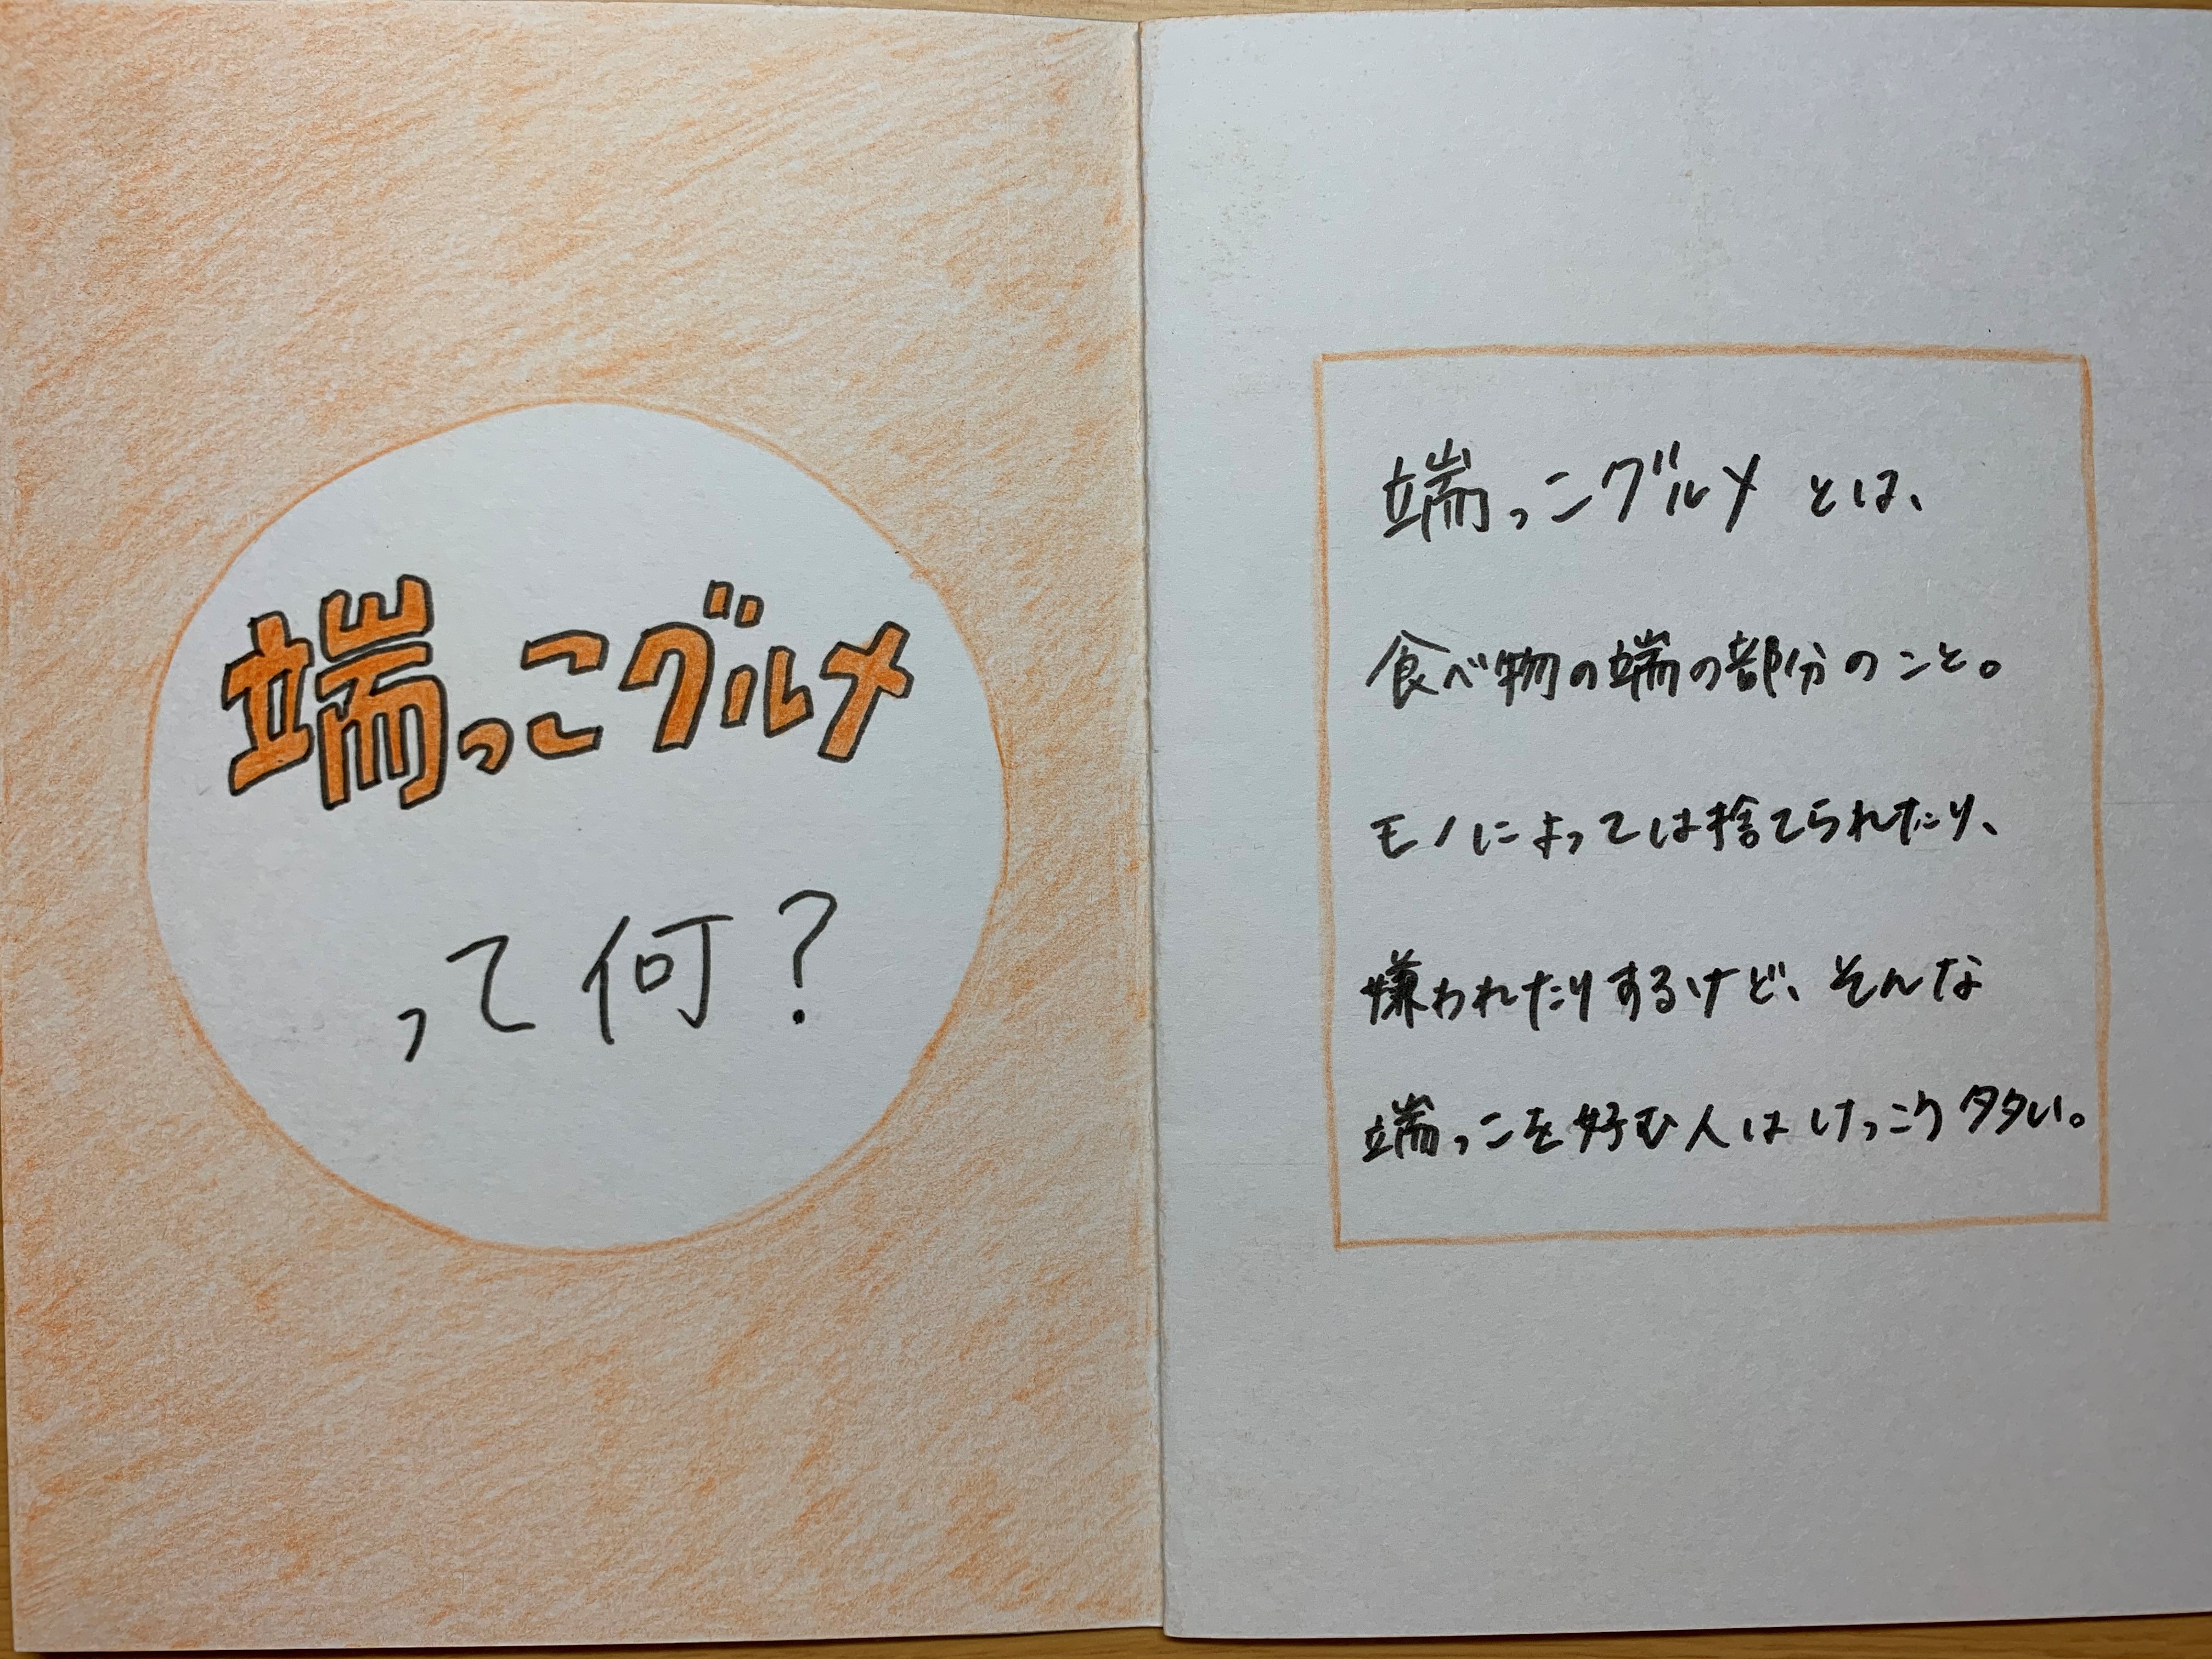 端っこグルメ
って何？
端っこグルメとは、
食べ物の端の部分のこと。
モノによっては捨てられたり、
嫌われたりするけど、そんな
端っこを好む人はけっこう多い。